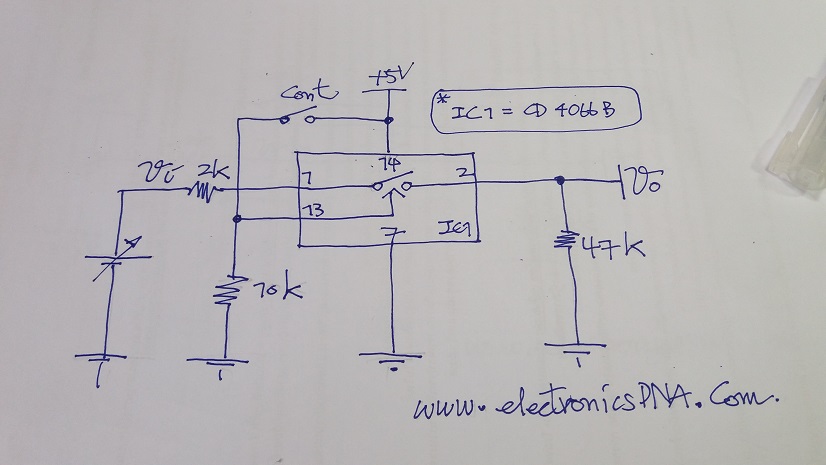 +5V
Cont
* IC1 = CD 4066B
Vi 2k
14
1
2
Vo
13
IC1
7
47k
10k
www.electronicsDNA.Com.